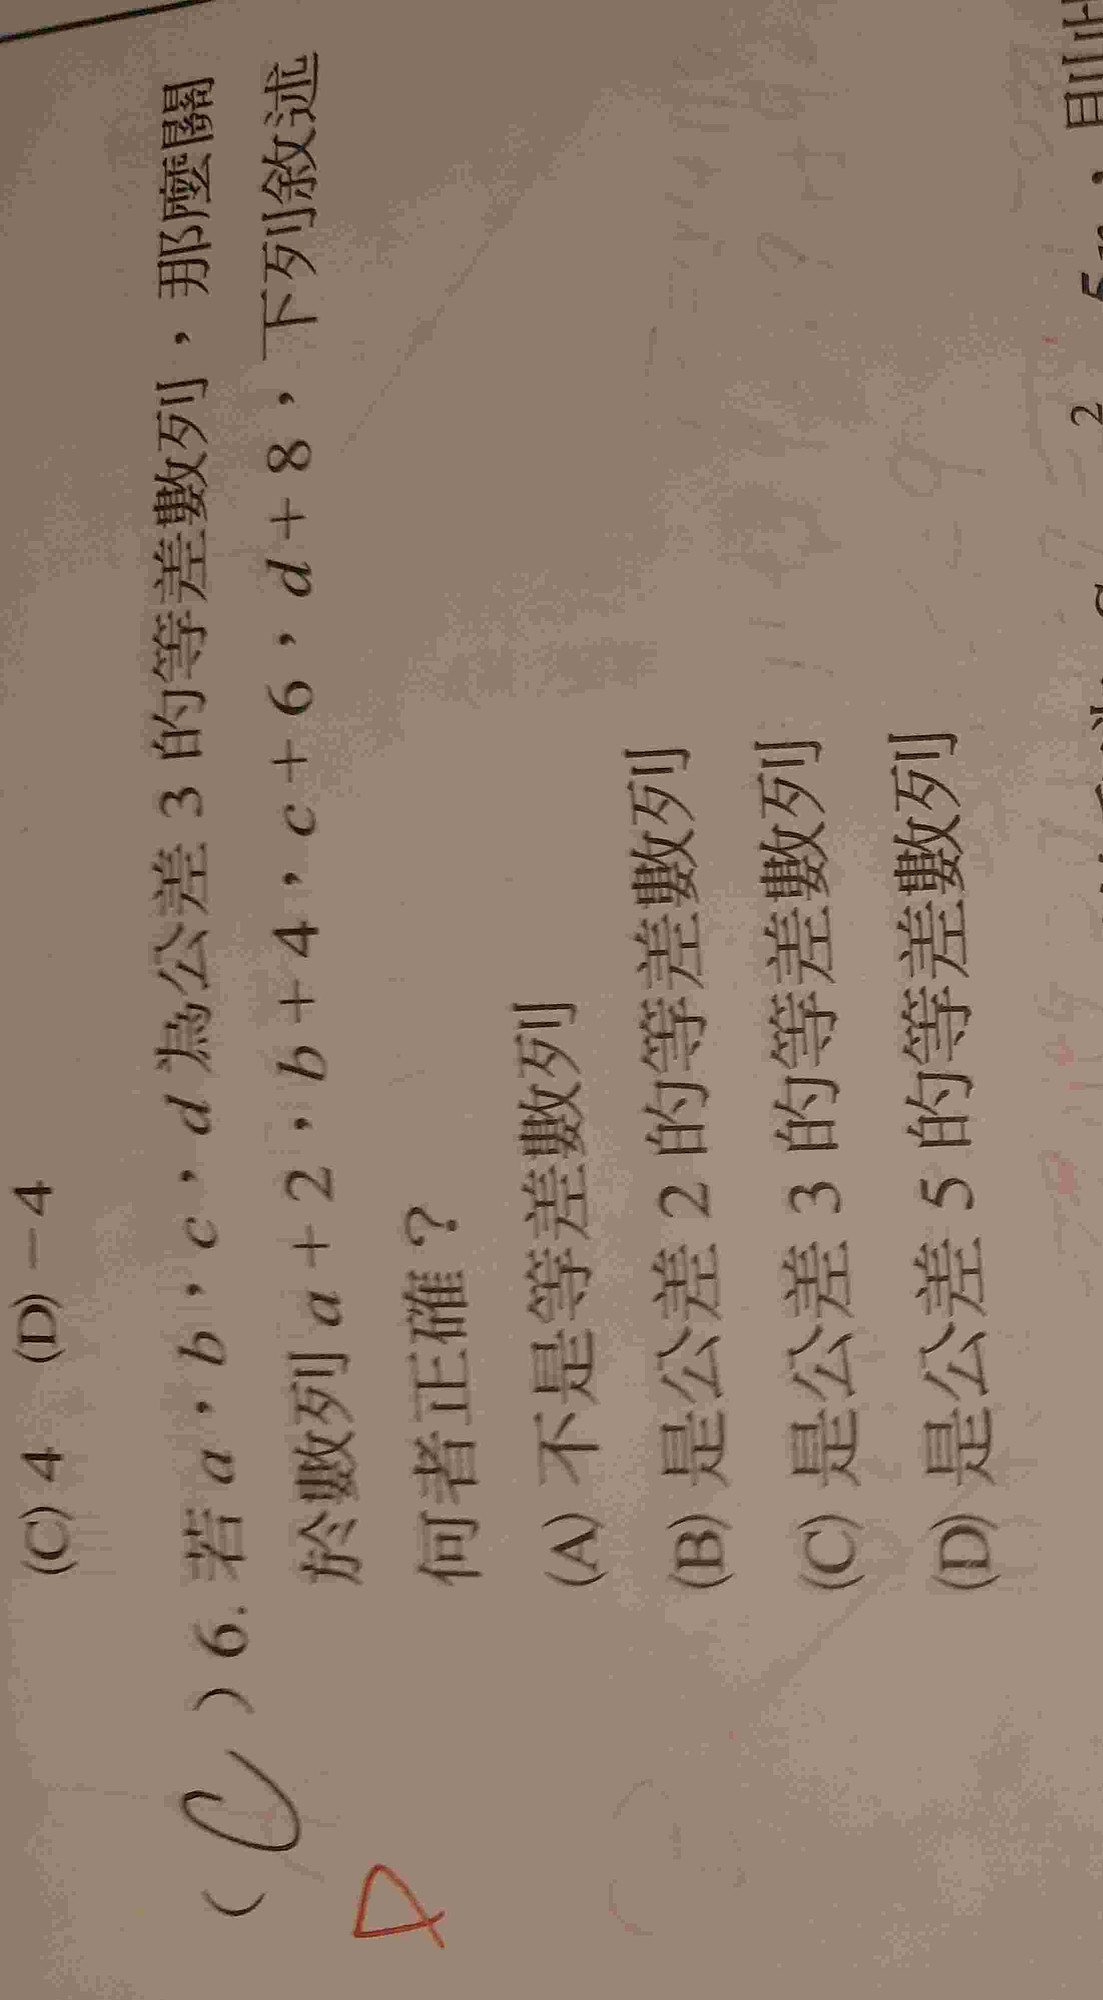 (C) 4 (D) －4
( C ) 6. 若 a，b，c，d 為公差 3 的等差數列，那麼關
於數列 a＋2，b＋4，c＋6，d＋8，下列敘述
何者正確？
(A) 不是等差數列
(B) 是公差 2 的等差數列
(C) 是公差 3 的等差數列
(D) 是公差 5 的等差數列